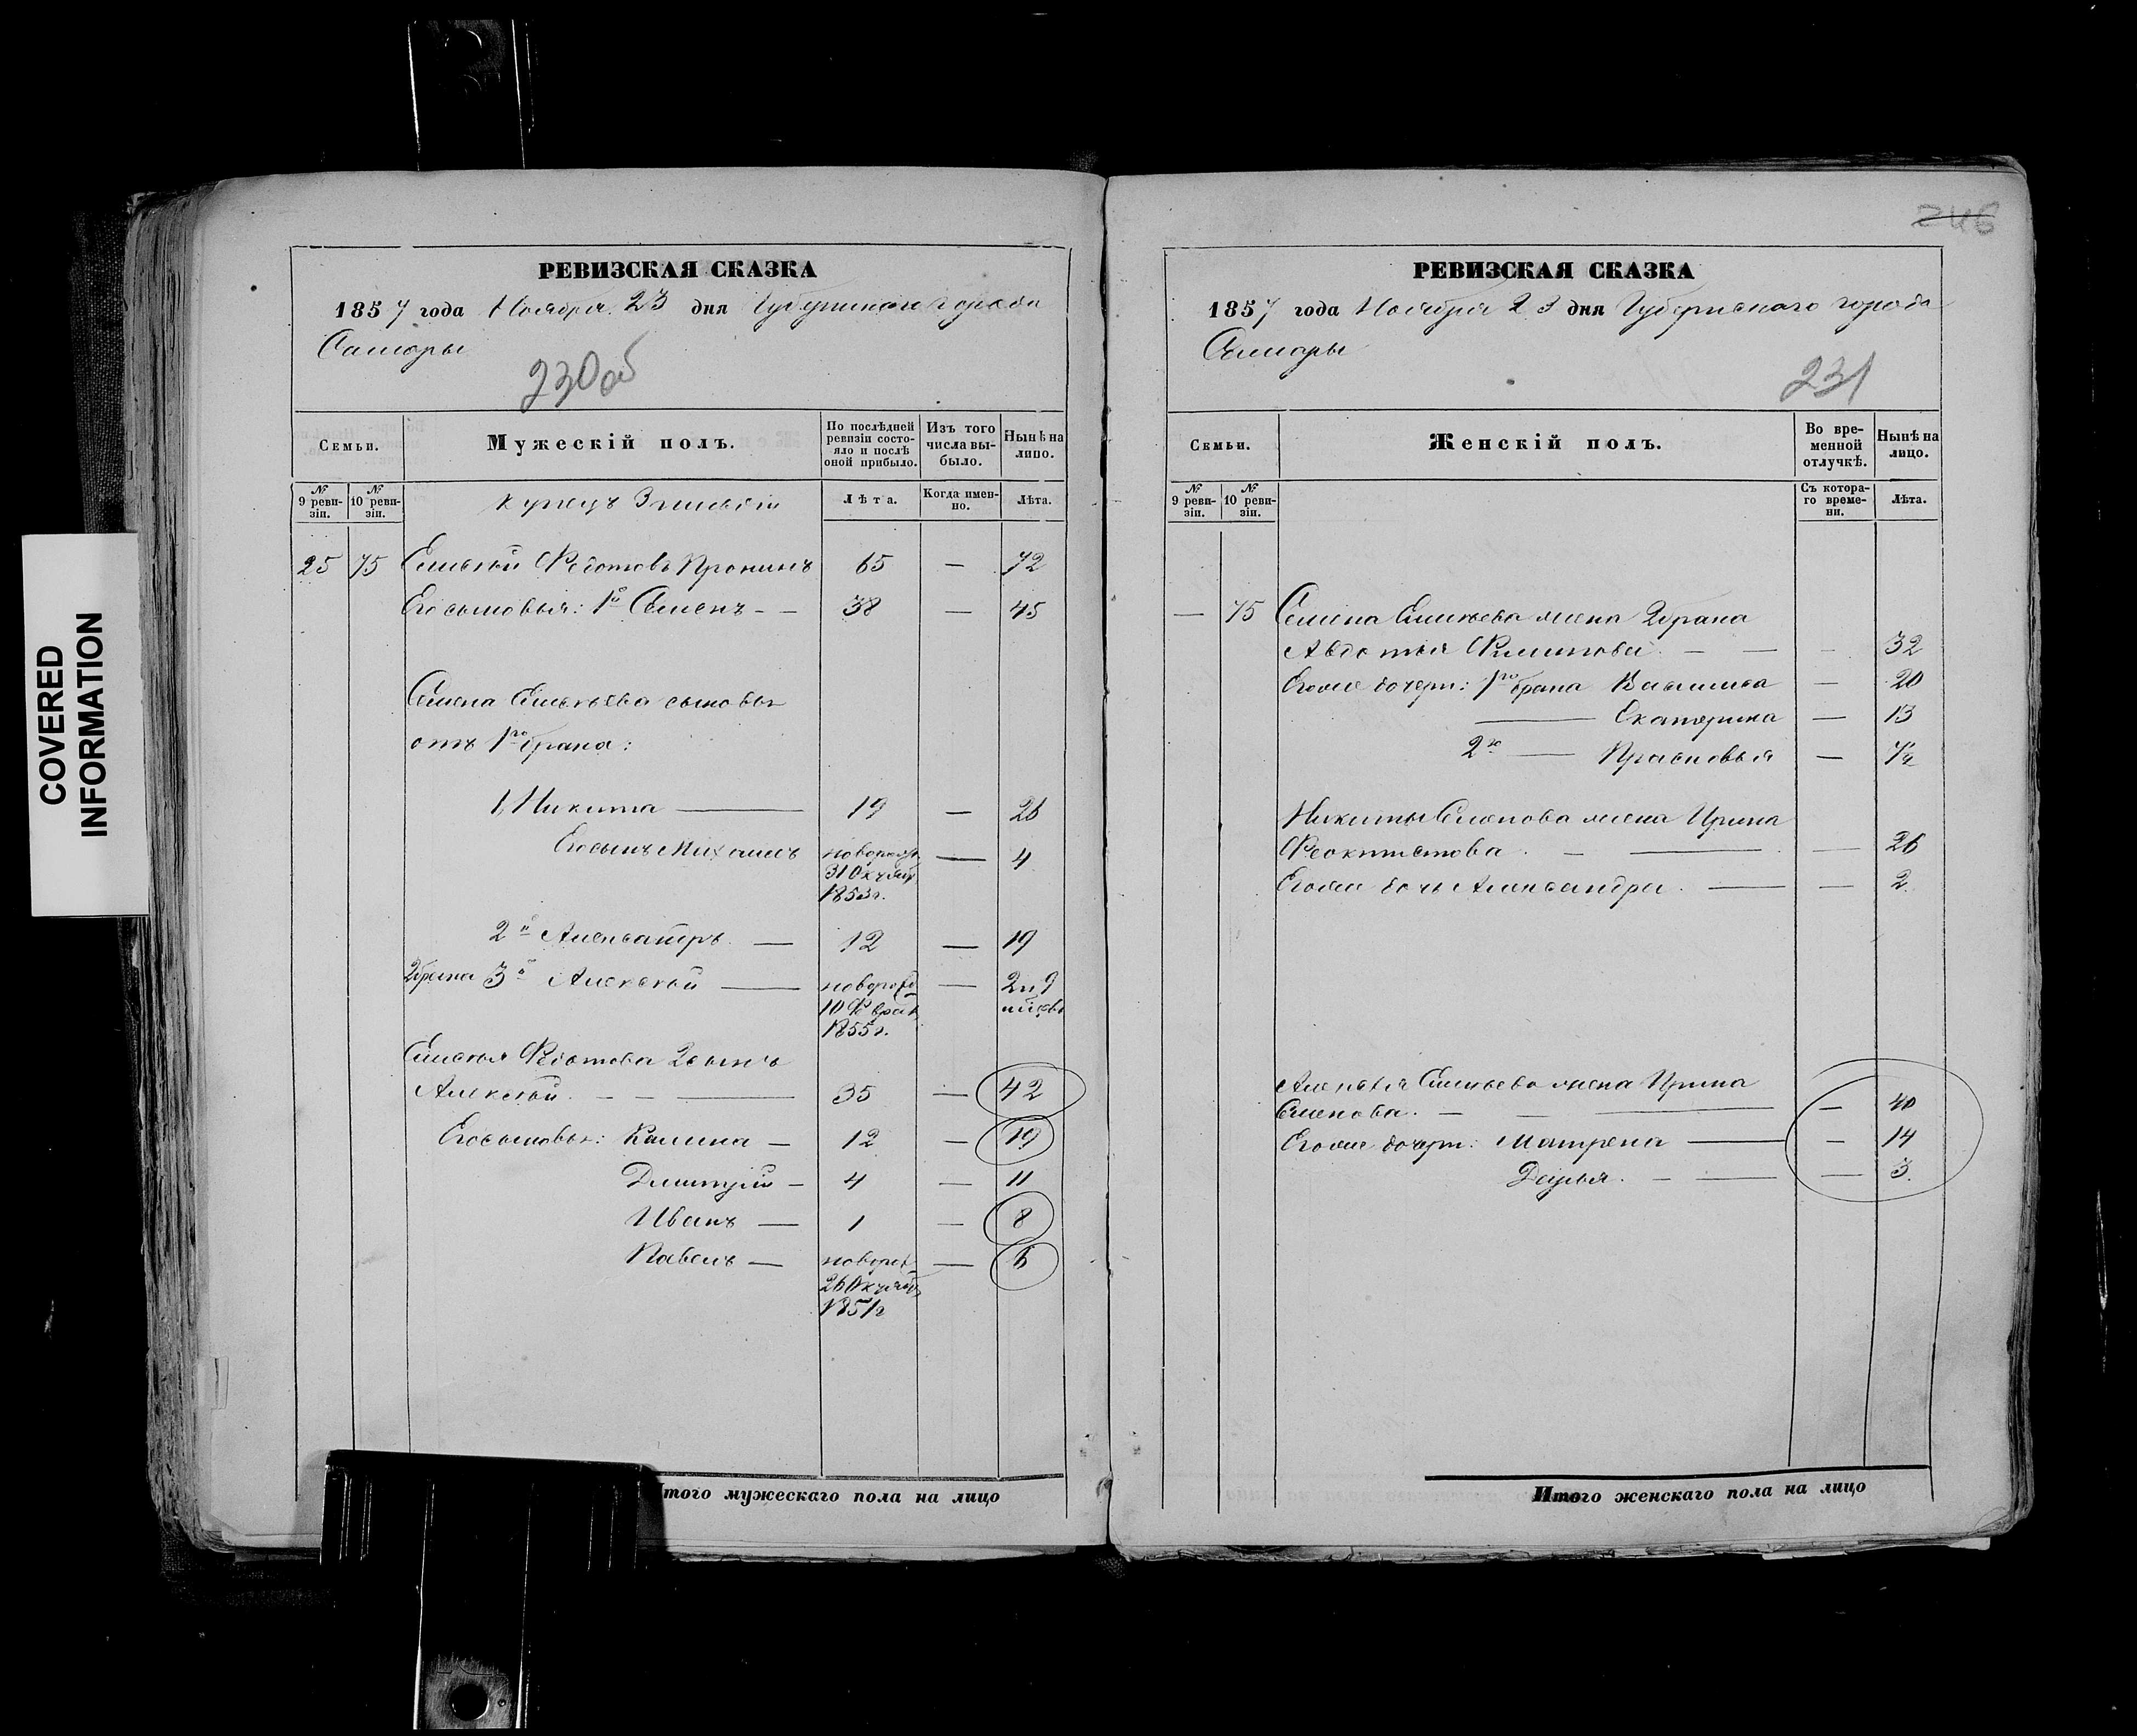 COVERED
INFORMATION
РЕВИЗСКАЯ СКАЗКА
1857 года Ноября 23 дня Губернскаго города
Самары
230 об
Семьи.
Мужескiй полъ.
По послѣдней ревизiи состояло и послѣ оной прибыло.
Изъ того числа выбыло.
Нынѣ на лицо.
№ 9 ревизiи.
№ 10 ревизiи.
Купецъ 3 гильдiи
Лѣта.
Когда именно.
Лѣта.
25 75 Емельян Федотовъ Пронинъ 65 — 72
Его сыновья: 1й Семенъ - — 38 — 45
Семена Емельева сыновья
отъ 1го брака:
1, Никита — 19 — 26
Его сынъ Михаилъ новорожд. — 4
31 Октяб.
1853 г.
2й Александръ — 12 — 19
2 брака 3й Алексѣй — новорожд — 2 и 9
10 Феврал. мѣсяцв
1855 г.
Федотова 2 сынъ
Алексѣй. - - — 35 — 42
Его сыновья: Калина — 12 — 19
Дмитрiй — 4 — 11
Иванъ — 1 — 8
Павелъ — новорож — 6
26 Октяб
1851 г
Итого мужескаго пола на лицо
246
РЕВИЗСКАЯ СКАЗКА
1857 года Ноября 23 дня Губернскаго города
Самары
231
Семьи.
Женскiй полъ.
Во временной отлучкѣ.
Нынѣ на лицо.
№ 9 ревизiи.
№ 10 ревизiи.
Съ котораго времени.
Лѣта.
— 75 Семена Емельева жена 2 брака
Авдотья Филипова. — — - 32
Егоже дочери: 1го брака Василиса — 20
— Екатерина — 13
2го — Прасковья — 1/2
Никиты Семенова жена Ирина
Феоктистова. - — — 26
Егоже дочь Александра. — — 2
Алексѣя Емельева жена Ирина
Семенова. — — — — 40
Егоже дочери: Матрена — — 14
Дарья. - — — 3.
Итого женскаго пола на лицо